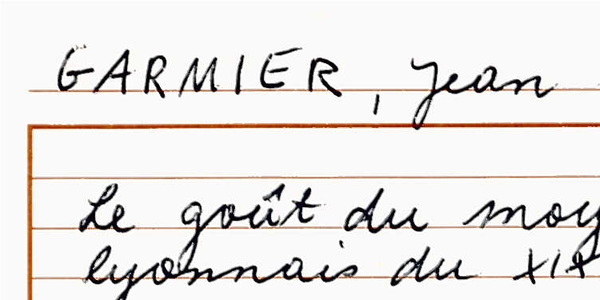 GARMIER, Jean
Le goût du moy
lyonnais du XIX